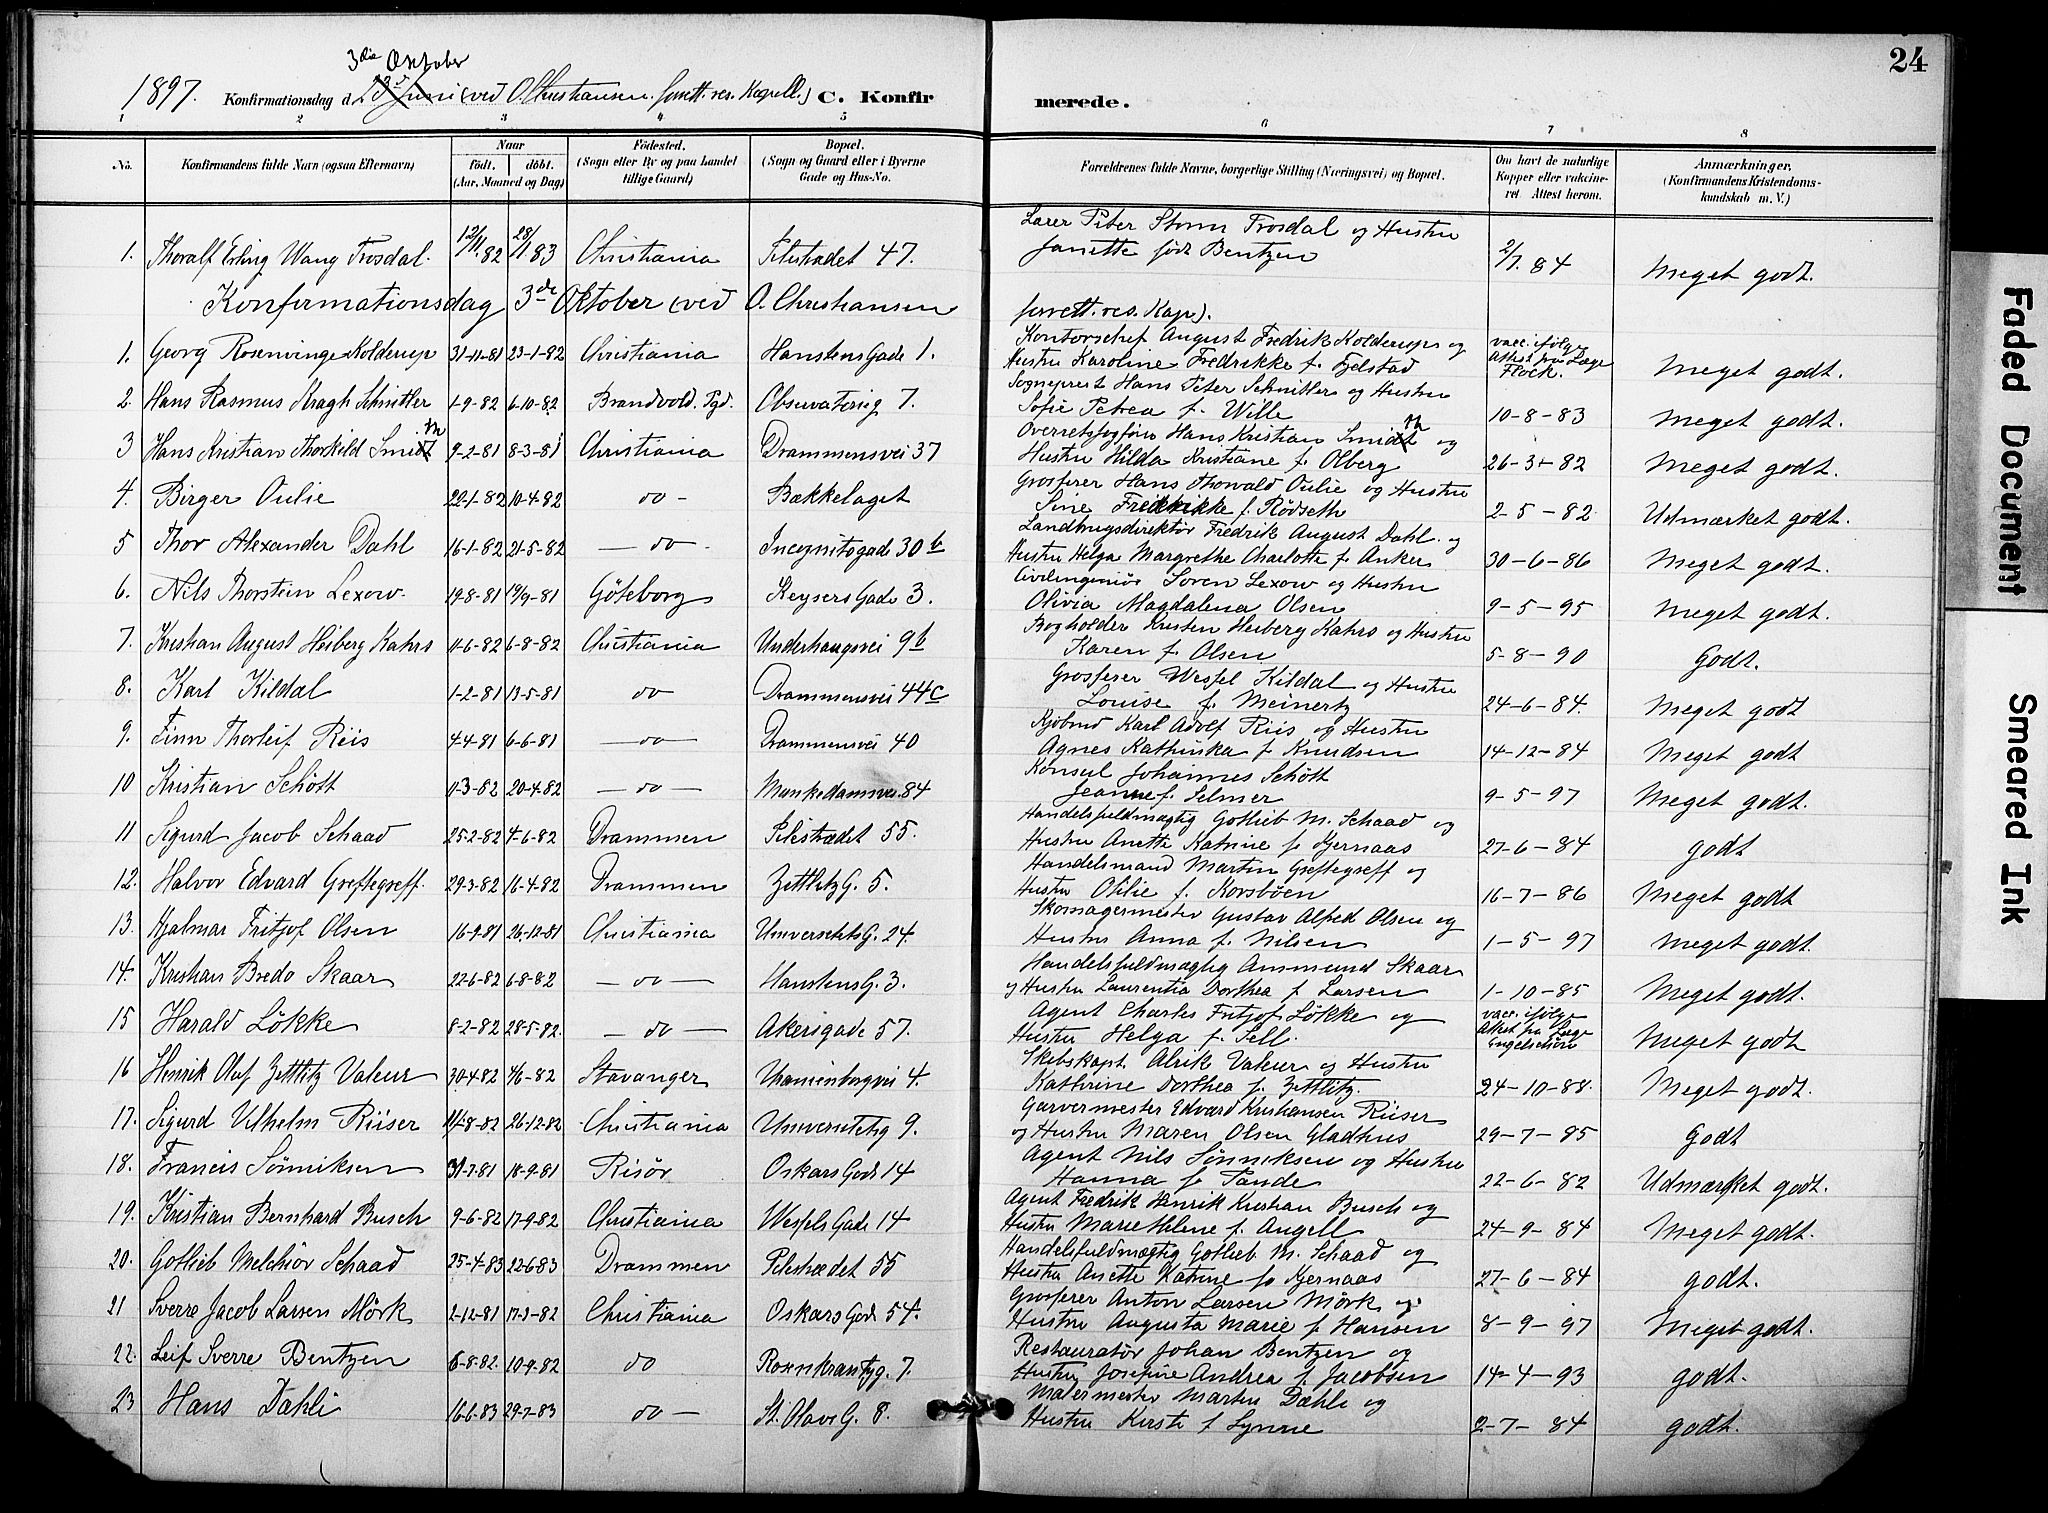 24
3die Oktober
1897. Konfirmationsdag d. 13de Juni (ved O. Christhansen forrett. res. Kapell.) C. Konfirmerede.
1 2 3 4 5 6 7 8
No. Konfirmandens fulde Navn (ogsaa Efternavn) Naar födt. döbt. (Aar, Maaned og Dag) Födested. (Sogn eller By og paa Landet tillige Gaard) Bopæl. (Sogn og Gaard eller i Byerne Gade og Hus-No. Forældrenes fulde Navne, borgerlige Stilling (Næringsvei) og Bopæl. Om havt de naturlige Kopper eller vaccineret. Attest herom. Anmærkninger. (Konfirmandens Kristendomskundskab m. V.)
1. Thoralf Erling Wang Trosdal. 12/11.82 28/1 83 Christiania Pilestrædet 47. Lærer Peter Storm Trosdal og Hustru Janette född Bentzen 2/7. 84 Meget godt.
Konfirmationsdag 3de Oktober (ved O. Christhansen forrett. res. Kap).
1. Georg Rosenvinge Kolderup 31-11-81 23-1-82 Christiania Hanstens Gade 1. Kontorschef August Fredrik Kolderup og Hustru Karoline Fredrikke f. Fjelstad vacc. ifølge Attest fra Læge Flock. Meget godt.
2. Hans Rasmus Kragh Schnitler 1-9-82 6-10-82 Brandvold. Pgd. Observatorieg 7. Sogneprest Hans Peter Schnitler og Hustru Sofie Petrea f. Wille 10-8-83 Meget godt.
3 Hans Kristian Thorkild Smith 9-2-81 8-3-81 Christiania Drammensvei 37 Overretssagfører Hans Kristian Smith og Hustru Hilda Kristiane f. Olberg 26-3-82 Meget godt.
4. Birger Oulie 22-1-82 10-4-82 do - Bækkelaget Grosserer Hans Thorvald Oulie og Hustru Sine Fredrikke f. Rödseth 2-5-82 Udmærket godt.
5 Thor Alexander Dahl 16-1-82 21-5-82 — do - Incognitogade 30 b Landbrugsdirektör Fredrik August Dahl og Hustru Helga Margrethe Charlotte f. Anker 30-6-86 Meget godt.
6. Nils Thorstein Lexow. 19-8-81 19/9-81 Göteborg Keysers Gade 3. Civilingeniör Sören Lexow og Hustru Olivia Magdalena Olsen 9-5-95 Meget godt.
7. Kristian August Heiberg Kahrs 11-6-82 6-8-82 Christiania Underhaugsvei 9 b Bogholder Kristen Heiberg Kahrs og Hustru Karen f. Olsen 5-8-90 Godt.
8. Karl Kildal 1-2-81 13-5-81 do Drammensvei 44 c Grosserer Wessel Kildal og Hustru Louise f. Meinertz 24-6-84. Meget godt
9. Finn Thorleif Riis 4-4-81 6-6-81 — do — Drammensvei 40 Kjöbmd Karl Adolf Riis og Hustru Agnes Kathinka f. Knudsen 14-12-84 Meget godt
10 Kristian Schött 11-3-82 20-4-82 — do — Munkedamsvei 84 Konsul Johannes Schött Jeanne f. Selmer 9-5-97 Meget godt.
11 Sigurd Jacob Schaad 25-2-82 4-6-82 Drammen Pilestrædet 55. Handelsfuldmægtig Gotlieb M. Schaad og Hustru Anette Katrine f. Gjernaas 27-6-84 godt
12. Halvor Edvard Greftegreff. 29-3-82 16-4-82 Drammen Zettlitz G. 5. Handelsmand Martin Greftegreff og Hustru Otilie f. Korsböen 16-7-86 Meget godt
13. Hjalmar Fritjof Olsen 16-9-81 26-12-81 Christiania Universitets G. 24. Skomagermester Gustav Alfred Olsen og Hustru Anna f. Nilsen 1-5-97 Meget godt.
14. Kristian Bredo Skaar 22-6-82 6-8-82 — do — Hanstens G. 3. Handelsfuldmægtig Ammund Skaar og Hustru Laurentia Dorthea f. Larsen 1-10-85 Meget godt.
15 Harald Lökke 8-2-82 28-5-82. — do — Akersgade 57. Agent Charles Fritjof Lökke og Hustru Helga f. Sell. vacc. ifølge Attest fra Læge Engelschiøn Meget godt
16 Henrik Olaf Zettlitz Valeur 30-4-82 4/6-82 Stavanger Uranienborgvei 4. Skibskapt. Alrik Valeur og Hustru Kathrine Dorthea f. Zettlitz 24-10-88. Meget godt.
17. Sigurd Vilhelm Riiser 11-8-82 26-12-82 Christiania Universitetsg 9. Garvermester Edvard Kristiansen Riiser og Hustru Maren Olsen Gladhus 29-7-85 Godt
18. Francis Sönniksen 31-7-81 18-9-81 Risör Oskars Gade 14 Agent Nils Sönniksen og Hustru Hanna f. Tande 22-6-82 Udmærket godt.
19. Kristian Bernhard Busch 9-6-82 17-9-82 Christiania Wessels Gade 14 Agent Fredrik Henrik Kristian Busch og Hustru Marie Helene f. Angell 24-9-84 Meget godt.
20. Gotlieb Melchior Schaad 25-4-83 22-6-83 Drammen Pilestrædet 55 Handelsfuldmægtig Gotlieb M. Schaad og Hustru Anette Katrine f. Gjernaas 27-6-84 godt.
21 Sverre Jacob Larsen Mörk 2-12-81 17-3-82 Christiania Oskars Gade 54. Grosserer Anton Larsen Mörk og Hustru Augusta Marie f. Hansen 8-9-97 Meget godt.
22. Leif Sverre Bentzen 6-8-82. 10-9-82 do Rosenkrantzg. 7. Restauratör Johan Bentzen og Hustru Josefine Andrea f. Jacobsen 14-4-93 godt.
23 Hans Dæhli 16-6-83 29-7-83 do — St. Olavs G. 8. Malermester Martin Dæhli og Hustru Kirsti f. Lynne 2-7-84 godt.
Faded Document
Smeared Ink